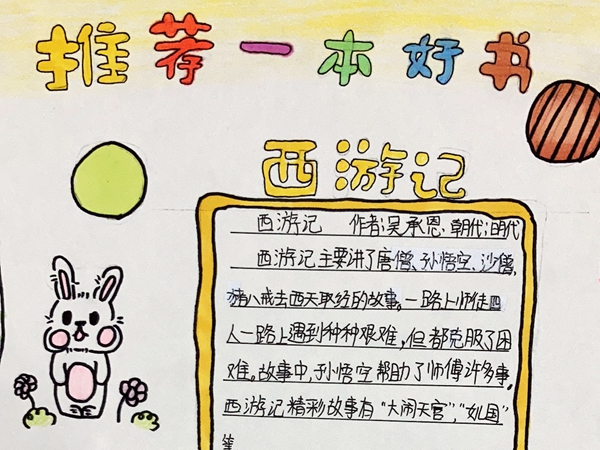 推荐一本好书
西游记
西游记 作者:吴承恩、朝代:明代
西游记主要讲了唐僧、孙悟空、沙僧、
猪八戒去西天取经的故事。一路上师徒四
人一路上遇到种种艰难,但都克服了困
难。故事中,孙悟空帮助了师傅许多事。
西游记精彩故事有“大闹天宫”,“女儿国”
等